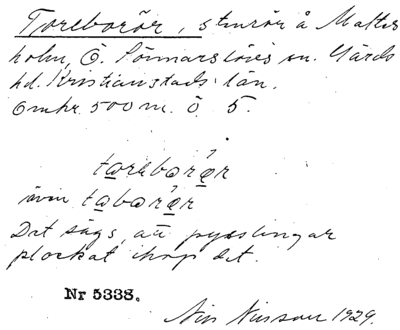 Toreborör, stenrör å Mattis
holm, Ö. Sönnarslövs sn. Gärds
hd. Kristianstads län.
Omkr. 500 m. ö 5.
toreborør
även taborør
Det säges, att pysslingar
plockat ihop det.
Nr 5338.
Nils Nilsson 1929.